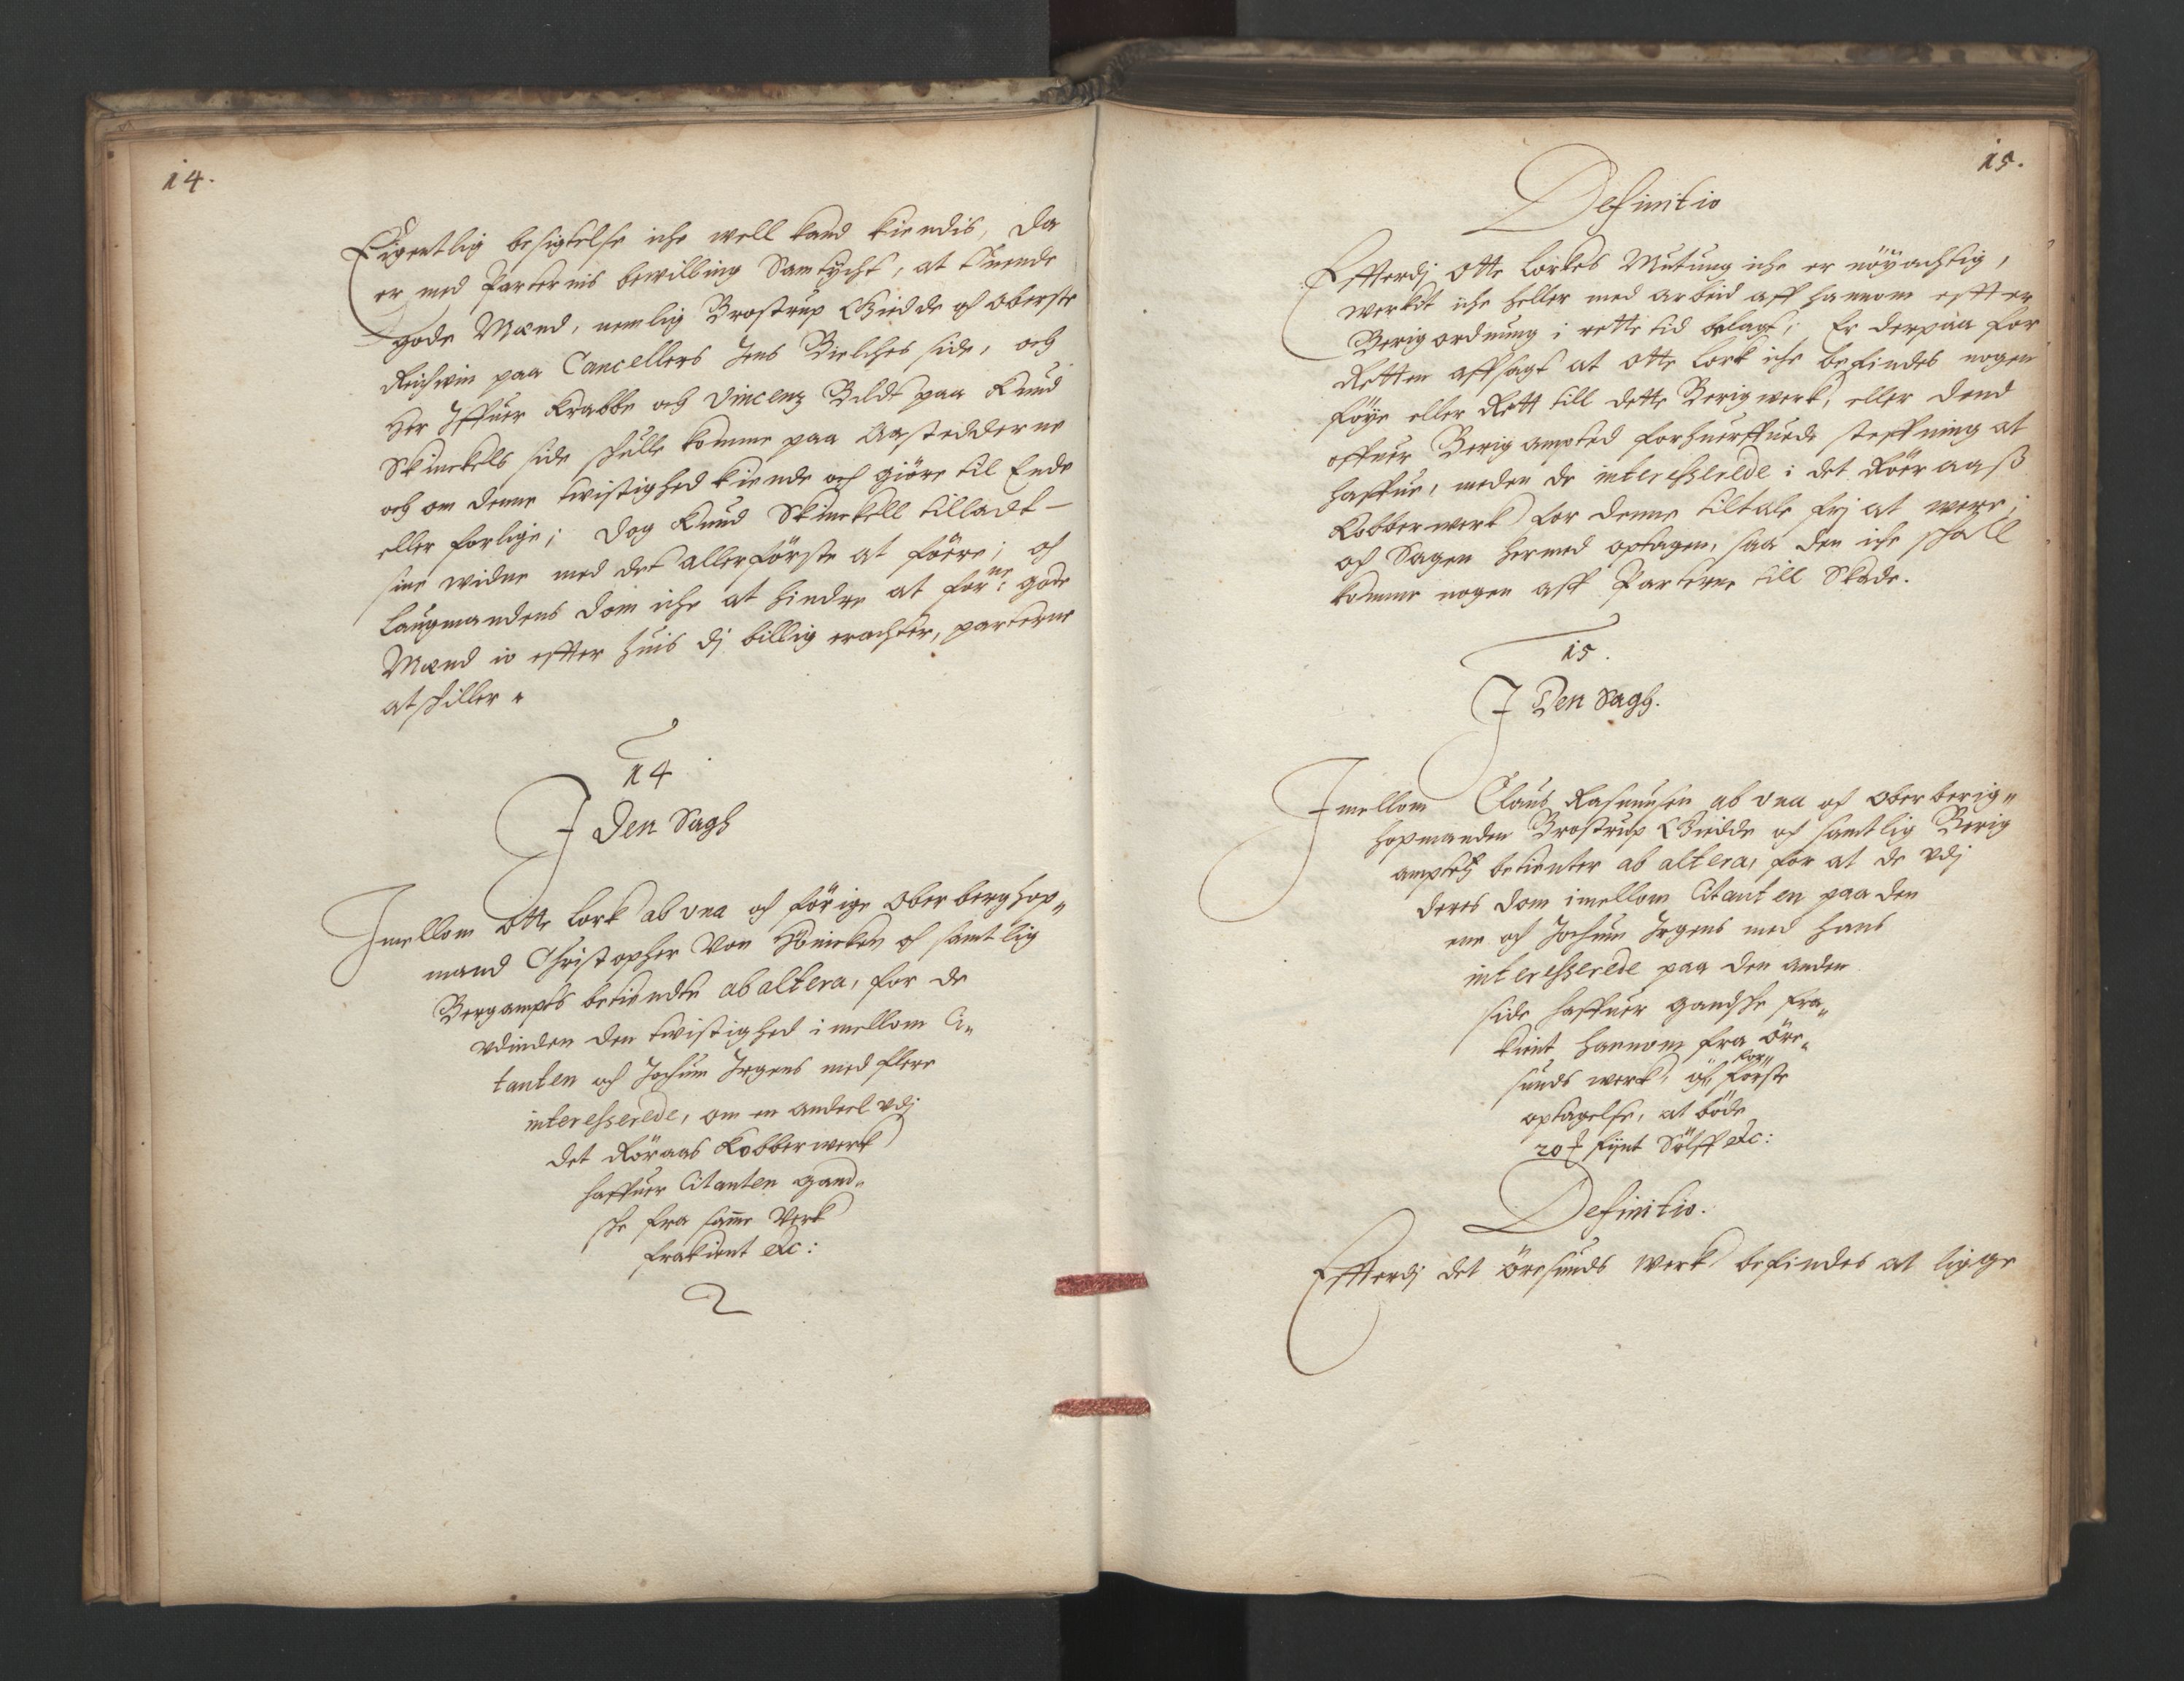 14.
Eigentlig besigtelse iche well kand kiendis, da
er med Parternis bewilling Samtycht, at tuende
gode Mænd, nemlig Brostrup Giedde och Oberste
Reichwin paa Cancellers Jens Bielches side, och
Her Iffuer Krabbe och Vincenz Bildt paa Knud
Skinckels side skulle komme paa Aastedderne
och om denne twistighed kiende och giöre til Ende
eller forlige; dog Knud Skinckell tilladt
sine widne med det allerförste at föere; och
Laugmandens dom iche at hindre at forne: gode
Mænd io effter huis dj billig erachter, parterne
atskiller.
14
I Den Sagh
Imellom Otte Lork ab una och förige Oberberghop„
mand Christopher Von Hönicken och samtlig
Bergampts betiendte ab altera, for de
udinden den twistighed imellom Ci„
tanten och Jochum Irgens med flere
interesserede, om en andeel udj
det Röraas Kobberwerk
haffuer Citanten gand„
ske fra samme Verk
frakient etc:
15.
Definitio
Effterdj Otte Lorkes Mutung iche er nöyachtig,
werket iche heller med arbeid aff hannom effter
Berigordnung i rette tid belagt; Er derpaa for
Retten affsagt at Otte Lork iche befindes nogen
föye eller Rett till dette Berigwerk, eller dend
offuer Berigampted forhuerffuede steffning at
haffue, meden de interesserede i det Röeraaß
Kobberwerk for denne tiltale frj at were;
och Sagen hermed optagen, saa den iche skall
komme nogen aff Parterne till Skade.
15.
I Den Sagh.
Imellom Claus Rasmusen ab una och Oberberig„
hopmanden Brostrup Giedde och samtlig Berig
amptetz betienter ab altera, for at de udj
deres dom imellom Citanten paa den
ene och Jochum Irgens med hans
interesserede paa den anden
side haffuer gandske fra„
kient hannom fra Öre„
sunds werk, och for„ förste
optagelse, at böde
20 ℔ fijnt Sölff etc:
Definitio.
Effterdj det Öresunds Werk befindes at ligge